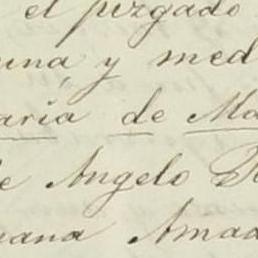 el pizgado
una y med
aria de Ma
e Angelo
ana Amad